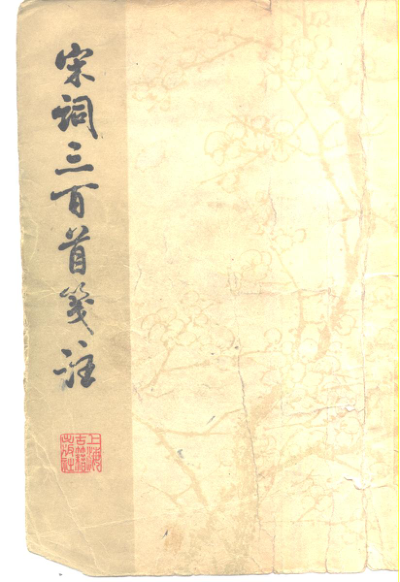 宋词三百首笺注
上海
古籍
出版社